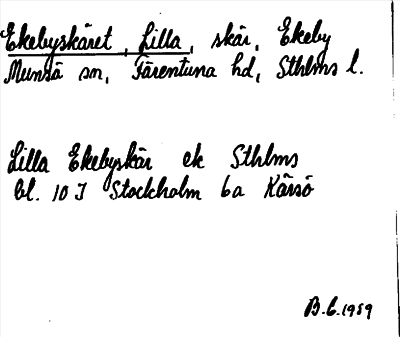 Ekebyskäret, Lilla, skär, Ekeby
Munsö sn, Färentuna hd, Sthlms l.
Lilla Ekebyskär ek Sthlms
bl. 10 I Stockholm 6a Kärsö
B.C. 1959